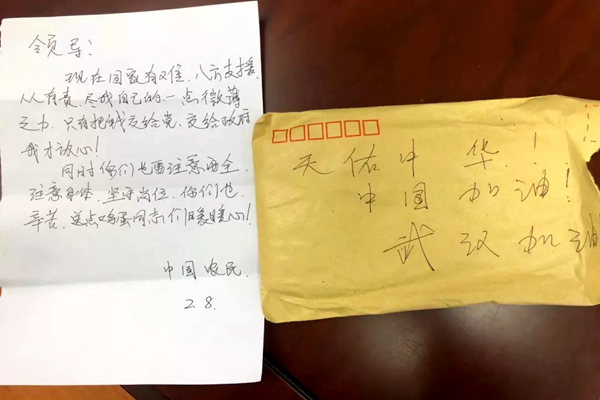 领导：
现在国家有难，八方支援，
人人有责，尽我自己的一点微薄
之力，只有把钱交给党、交给政府
我才放心！
同时你们也要注意安全，
注意身体，坚守岗位，你们也
辛苦，送点鸡蛋同志们暖暖心！
中国农民
2.8.
天佑中华！
中国加油！
武汉加油